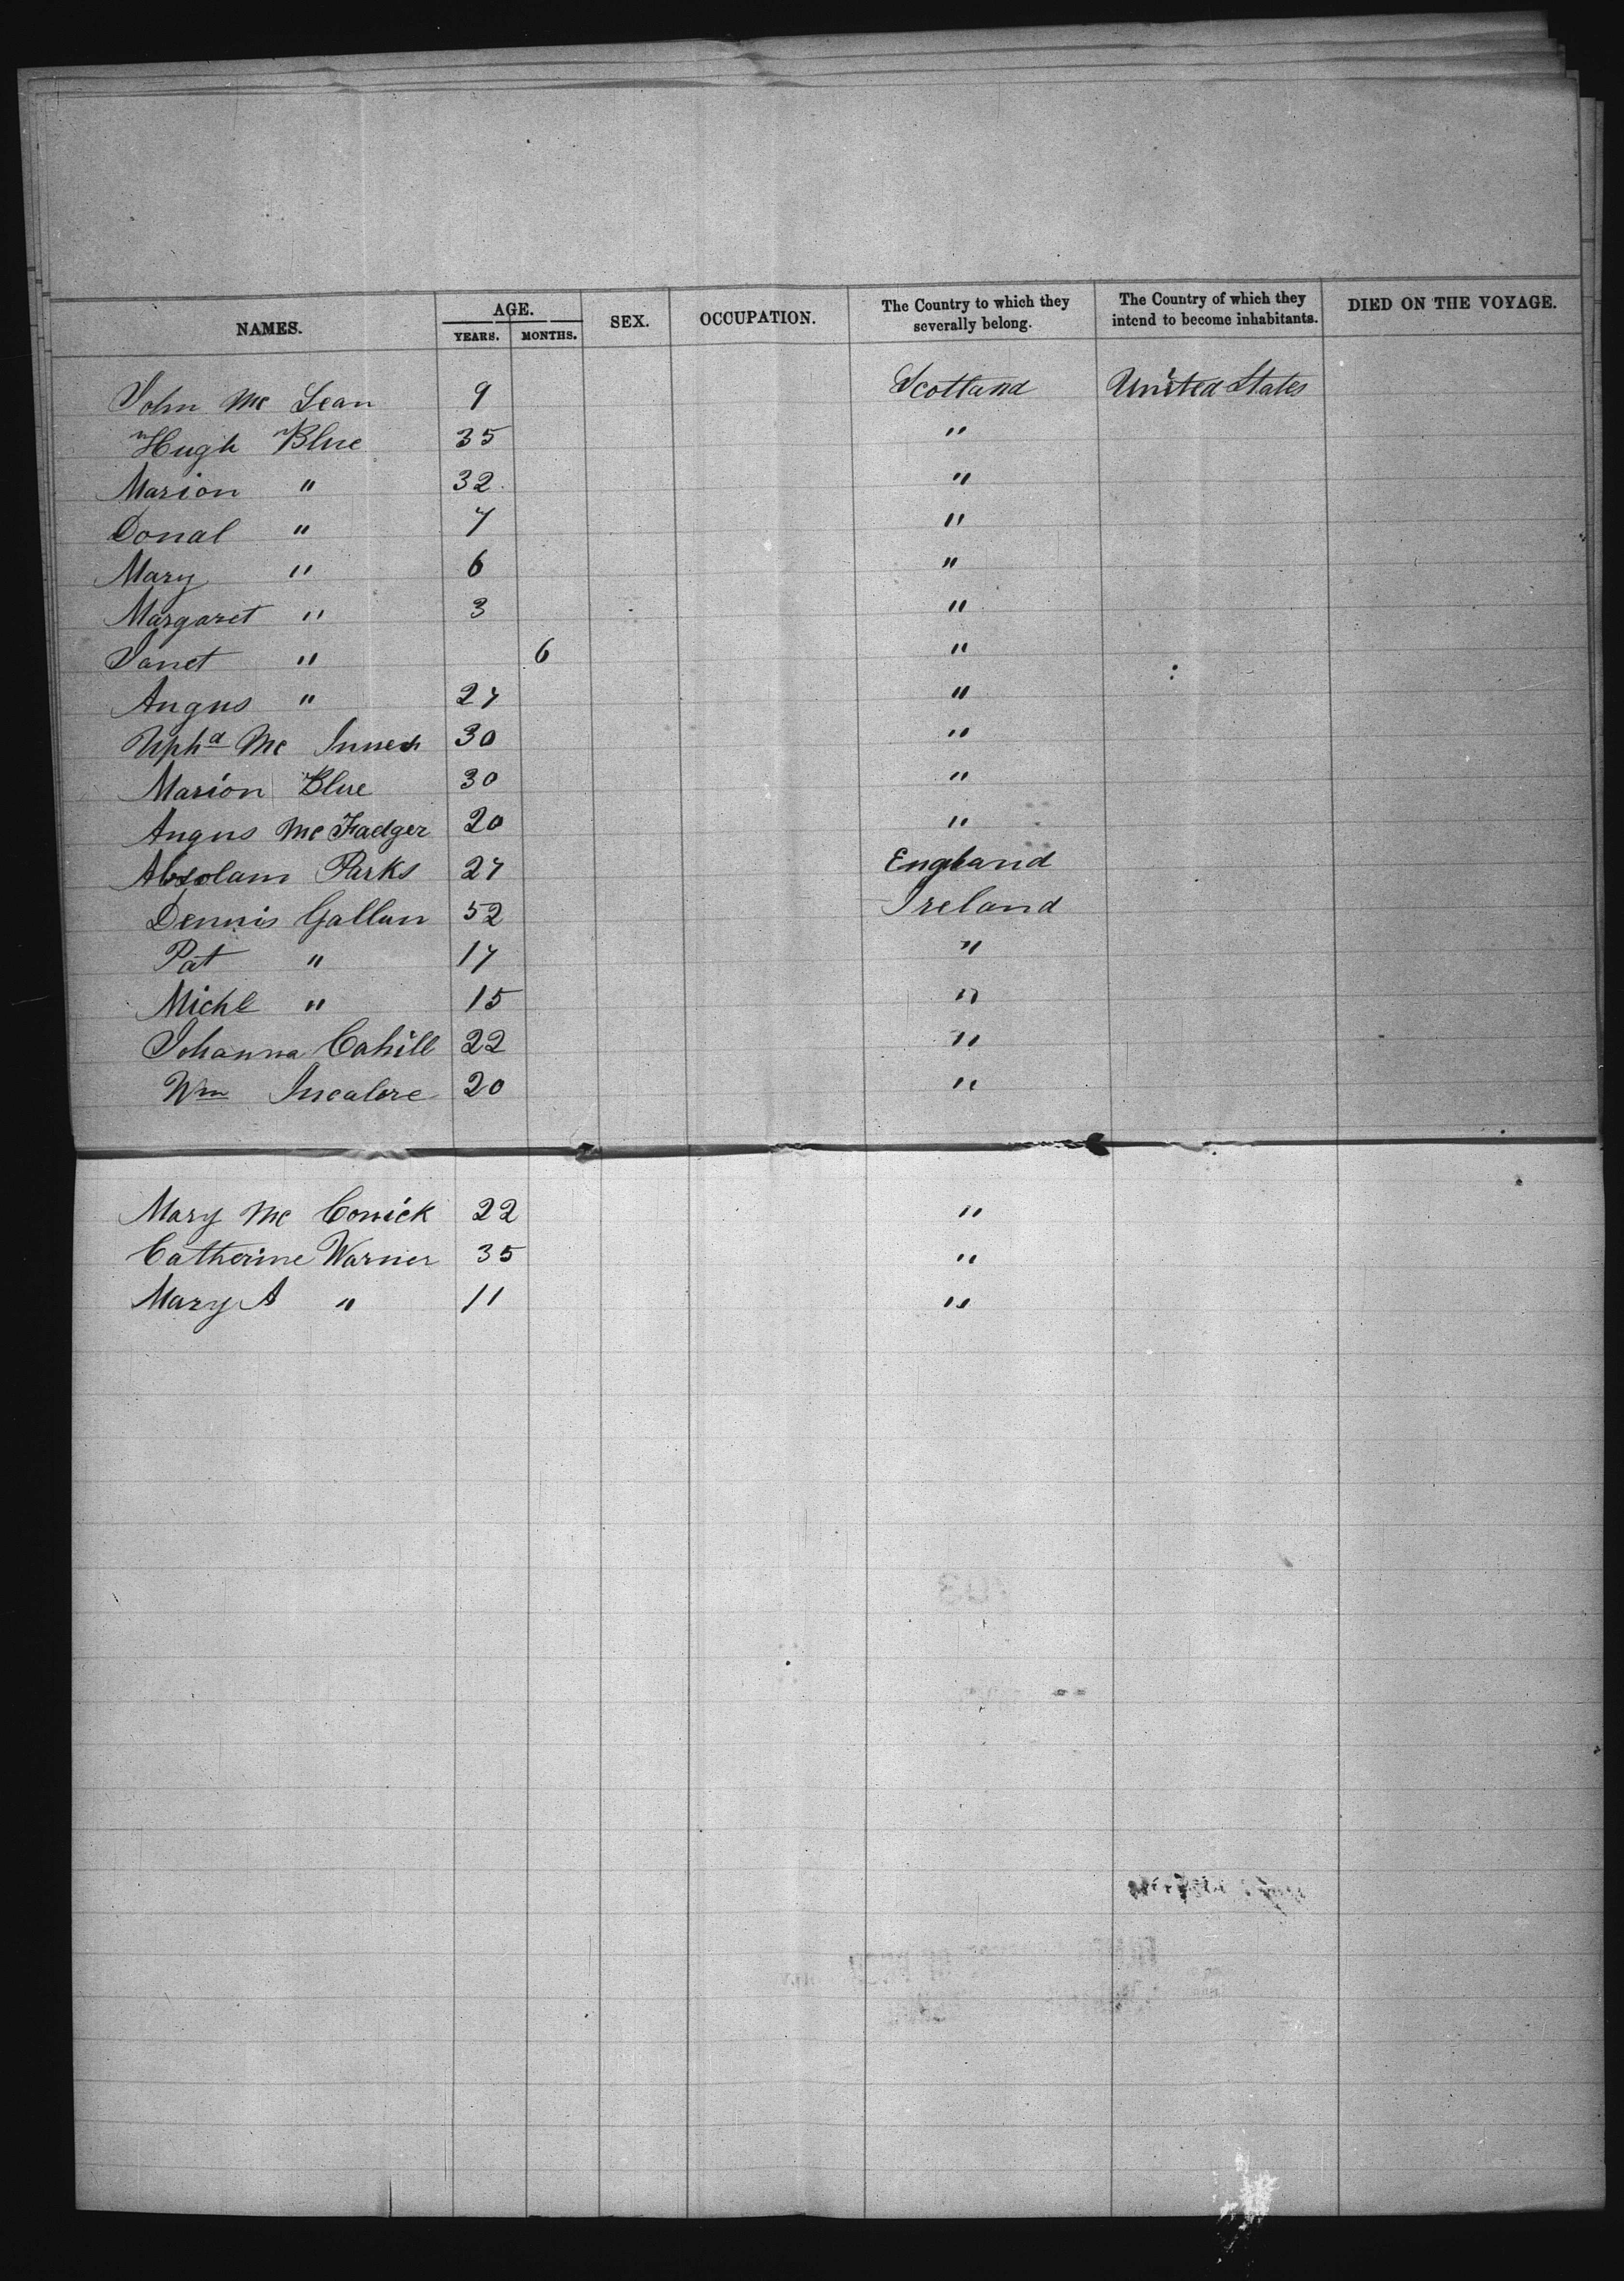 NAMES. AGE. YEARS. MONTHS. SEX. OCCUPATION. The Country to which they severally belong. The Country of which they intend to become inhabitants. DIED ON THE VOYAGE.
John Mc Lean 9 Scotland United States
Hugh Blue 35 "
Marion " 32 "
Donal " 7 "
Mary " 6 "
Margaret " 3 "
Janet " 6 "
Angus " 27 "
Uphª Mc Innes 30 "
Marion Blue 30 "
Angus McFadger 20 "
Absolam Parks 27 England
Dennis Gallun 52 Ireland
Pat " 17 "
Michl " 15 "
Johanna Cahill 22 "
Wm 20 "
Mary Mc Conick 22 "
Catherine Warner 35 "
Mary A " 11 "